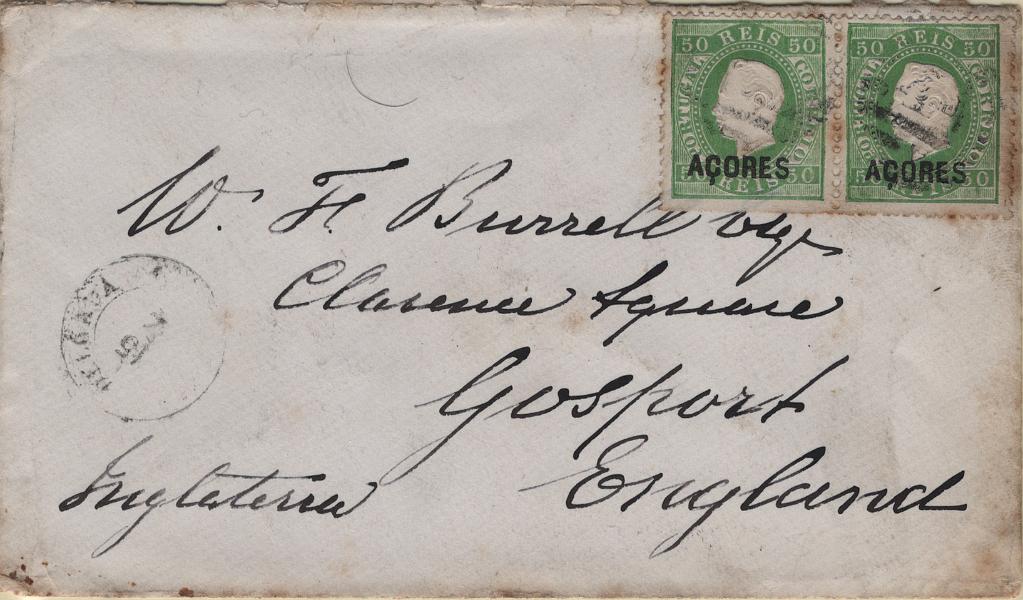 50 REIS 50
PORTUGAL
CORREIO
AÇORES
50 REIS 50
50 REIS 50
PORTUGAL
CORREIO
AÇORES
50 REIS 50
W. F. Burrell Esqr
Clarence Square
Gosport
England
DELGADA
Inglaterra